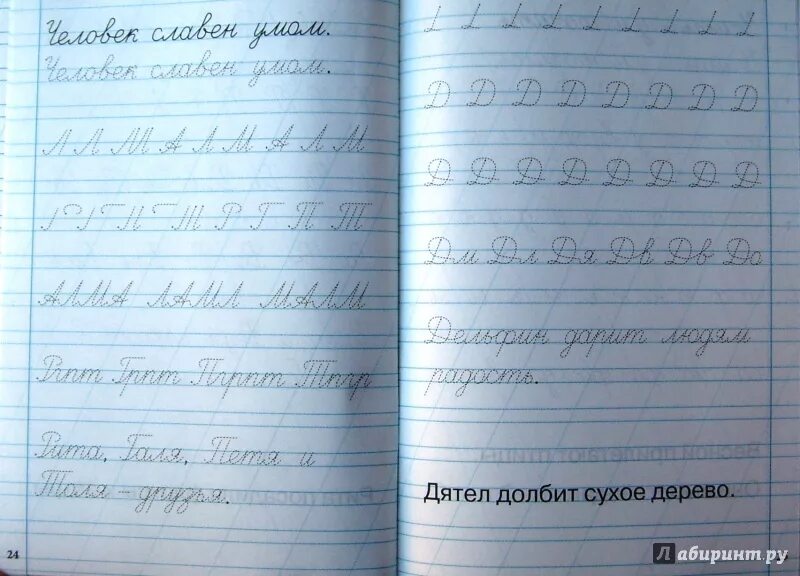 Человек славен умом.
Человек славен умом.
Л Л М А Л М А Л М
Г П Т Р Г П Т
АЛМА ЛАМЛ МАЛМ
Ргпт Грпт Пгрпт Тпгр
Рита, Галя, Петя и
Толя – друзья.
24
Д Д Д Д Д Д Д Д
Д Д Д Д Д Д Д Д
Дм Дл Дя Дв Дв До
Дельфин дарит людям
радость.
Дятел долбит сухое дерево.
Лабиринт.ру